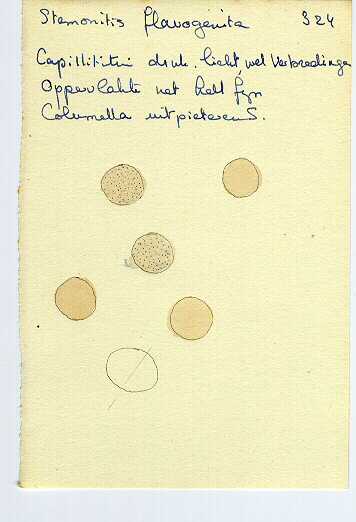 Stemonitis flavogenita 324
Capillitium licht, wel Verbredingen
Oppervlakte net heel fijn
Columella